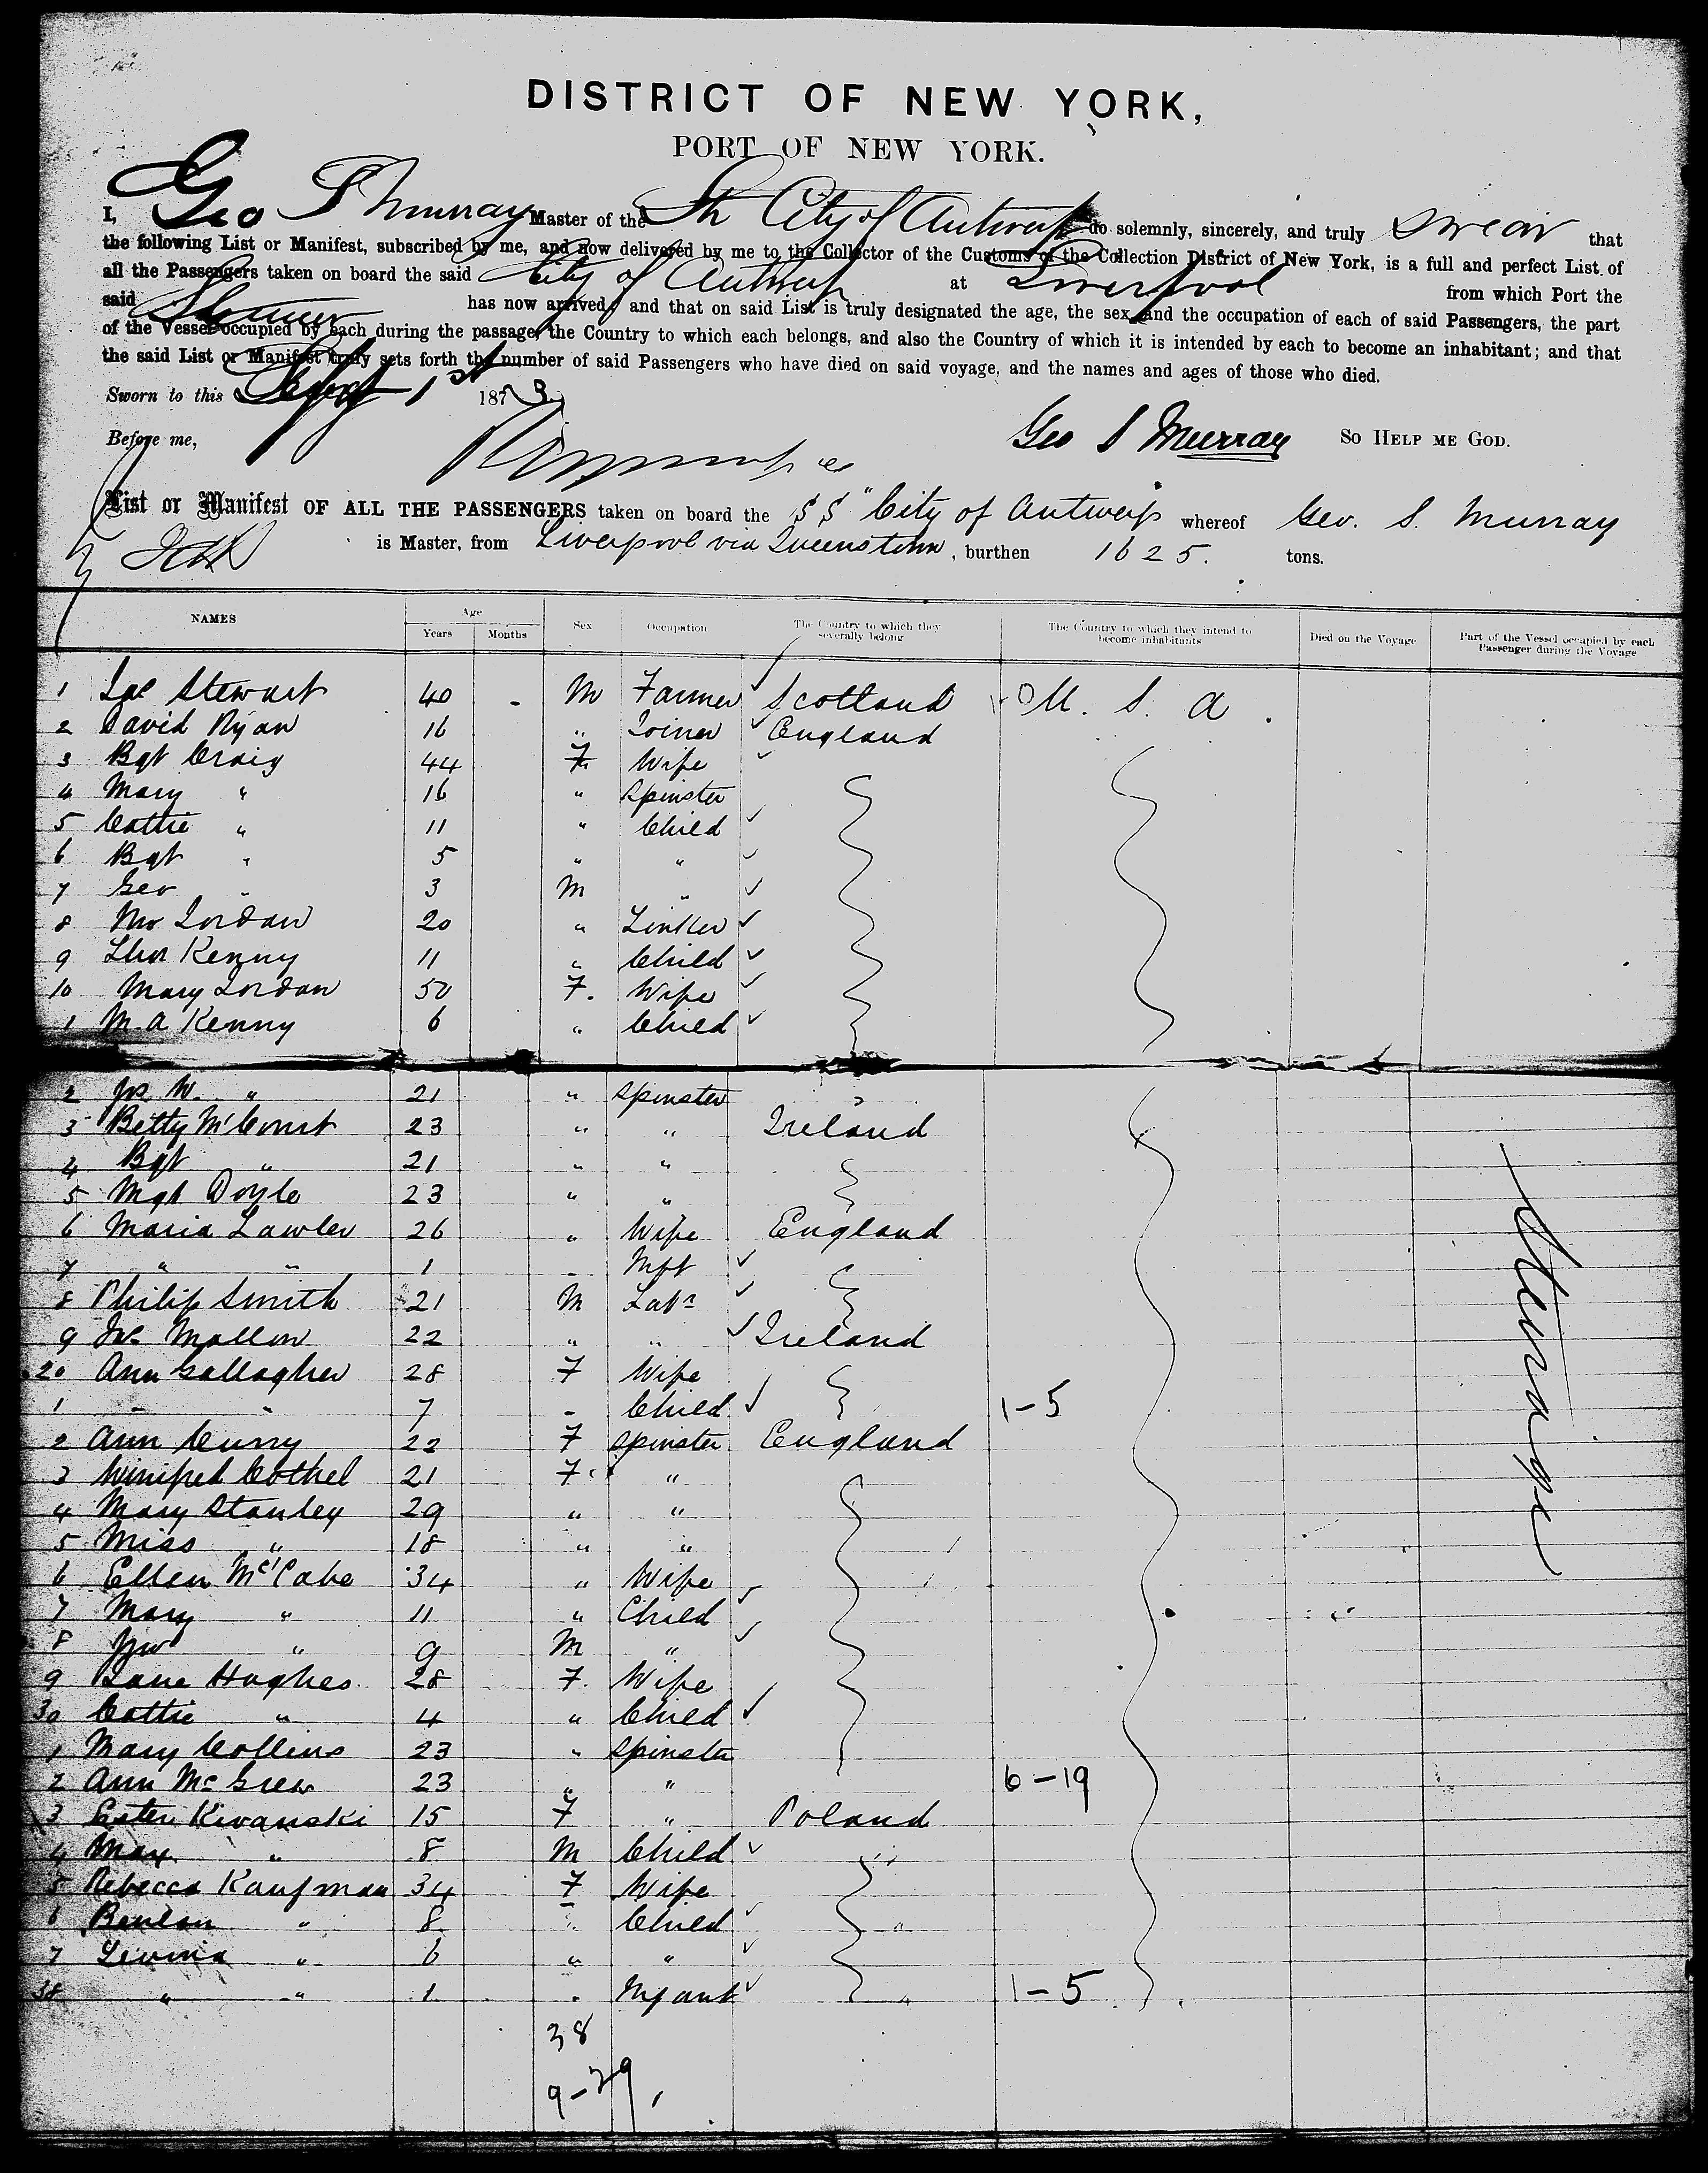 DISTRICT OF NEW YORK,
PORT OF NEW YORK.
I, Geo S Murray Master of the Str City of Antwerp do solemnly, sincerely, and truly swear that
the following List or Manifest, subscribed by me, and now delivered by me to the Collector of the Customs of the Collection District of New York, is a full and perfect List of
all the Passengers taken on board the said City of Antwerp at Liverpool from which Port the
said Steamer has now arrived; and that on said List is truly designated the age, the sex and the occupation of each of said Passengers, the part
of the Vessel occupied by each during the passage, the Country to which each belongs, and also the Country of which it is intended by each to become an inhabitant; and that
the said List or Manifest truly sets forth the number of said Passengers who have died on said voyage, and the names and ages of those who died.
Sworn to this Sept 1st 1873
Before me, Geo S Murray SO HELP ME GOD.
List or Manifest OF ALL THE PASSENGERS taken on board the SS "City of Antwerp whereof Geo. S. Murray
is Master, from Liverpool via Queenstown, burthen 1625. tons.
NAMES Age Years Months Sex Occupation The Country to which they severally belong The Country to which they intend to become inhabitants Died on the Voyage Part of the Vessel occupied by each Passenger during the Voyage
1 Jas Stewart 40 - M Farmer Scotland U. S. A.
2 David Ryan 16 " Joiner England
3 Bgt Craig 44 F. Wife
4 Mary " 16 " Spinster
5 Cattie " 11 " Child
6 Bgt " 5 " "
7 Geo " 3 M "
8 Jno Jordan 20 "
9 Thos Kenny 11 " Child
10 Mary Jordan 50 F. Wife
1 M. A Kenny 6 " Child
2 " 21 " Spinster
3 Betty McCourt 23 " " Ireland
4 Bgt " 21 " "
5 Mgt Doyle 23 " "
6 Maria Lawler 26 " Wife England
7 " " 1 - Inft
8 Philip Smith 21 M Labr
9 Jas Mallon 22 " " Ireland
20 Ann Gallagher 28 F Wife
1 - " 7 - Child 1-5
2 Ann Curry 22 F Spinster England
3 Winifred Cothel 21 F. "
4 Mary Stanley 29 " "
5 Miss " 18 " "
6 Ellen McCabe 34 " Wife
7 Mary " 11 " Child
8 Jno " 9 M "
9 Jane Hughes 28 F. Wife
30 Cattie " 4 " Child
1 Mary Collins 23 " Spinster
2 Ann McGrew 23 " " 6-19
3 Ester Kivanski 15 F " Poland
4 Max " 8 M Child
5 Rebecca Kaufman 34 F Wife
6 " 8 " Child
7 " 6 " "
38 " " 1 " Infant 1-5
Steerage
38
9-29,